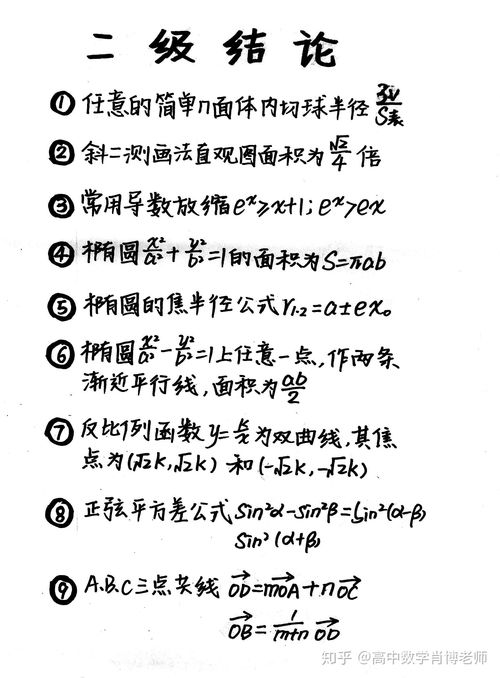 二级结论
① 任意的简单n面体内切球半径 3V/S表
② 斜二测画法直观图面积为 √2/4 倍
③ 常用导数放缩 eˣ≥x+1; eˣ>ex
④ 椭圆 x²/a² + y²/b² =1的面积为S=πab
⑤ 椭圆的焦半径公式 r₁.₂=a±ex₀
⑥ 椭圆 x²/a² - y²/b² =1上任意一点,作两条
渐近平行线,面积为 ab/2
⑦ 反比例函数 y= k/x 为双曲线,其焦
点为(√2K,√2K) 和(-√2K,-√2K)
⑧ 正弦平方差公式 sin²α-sin²β=sin²(α-β)
sin²(α+β)
⑨ A.B.C三点共线 OD=mOA+nOC
OB= 1/m+n OD
知乎 @高中数学肖博老师